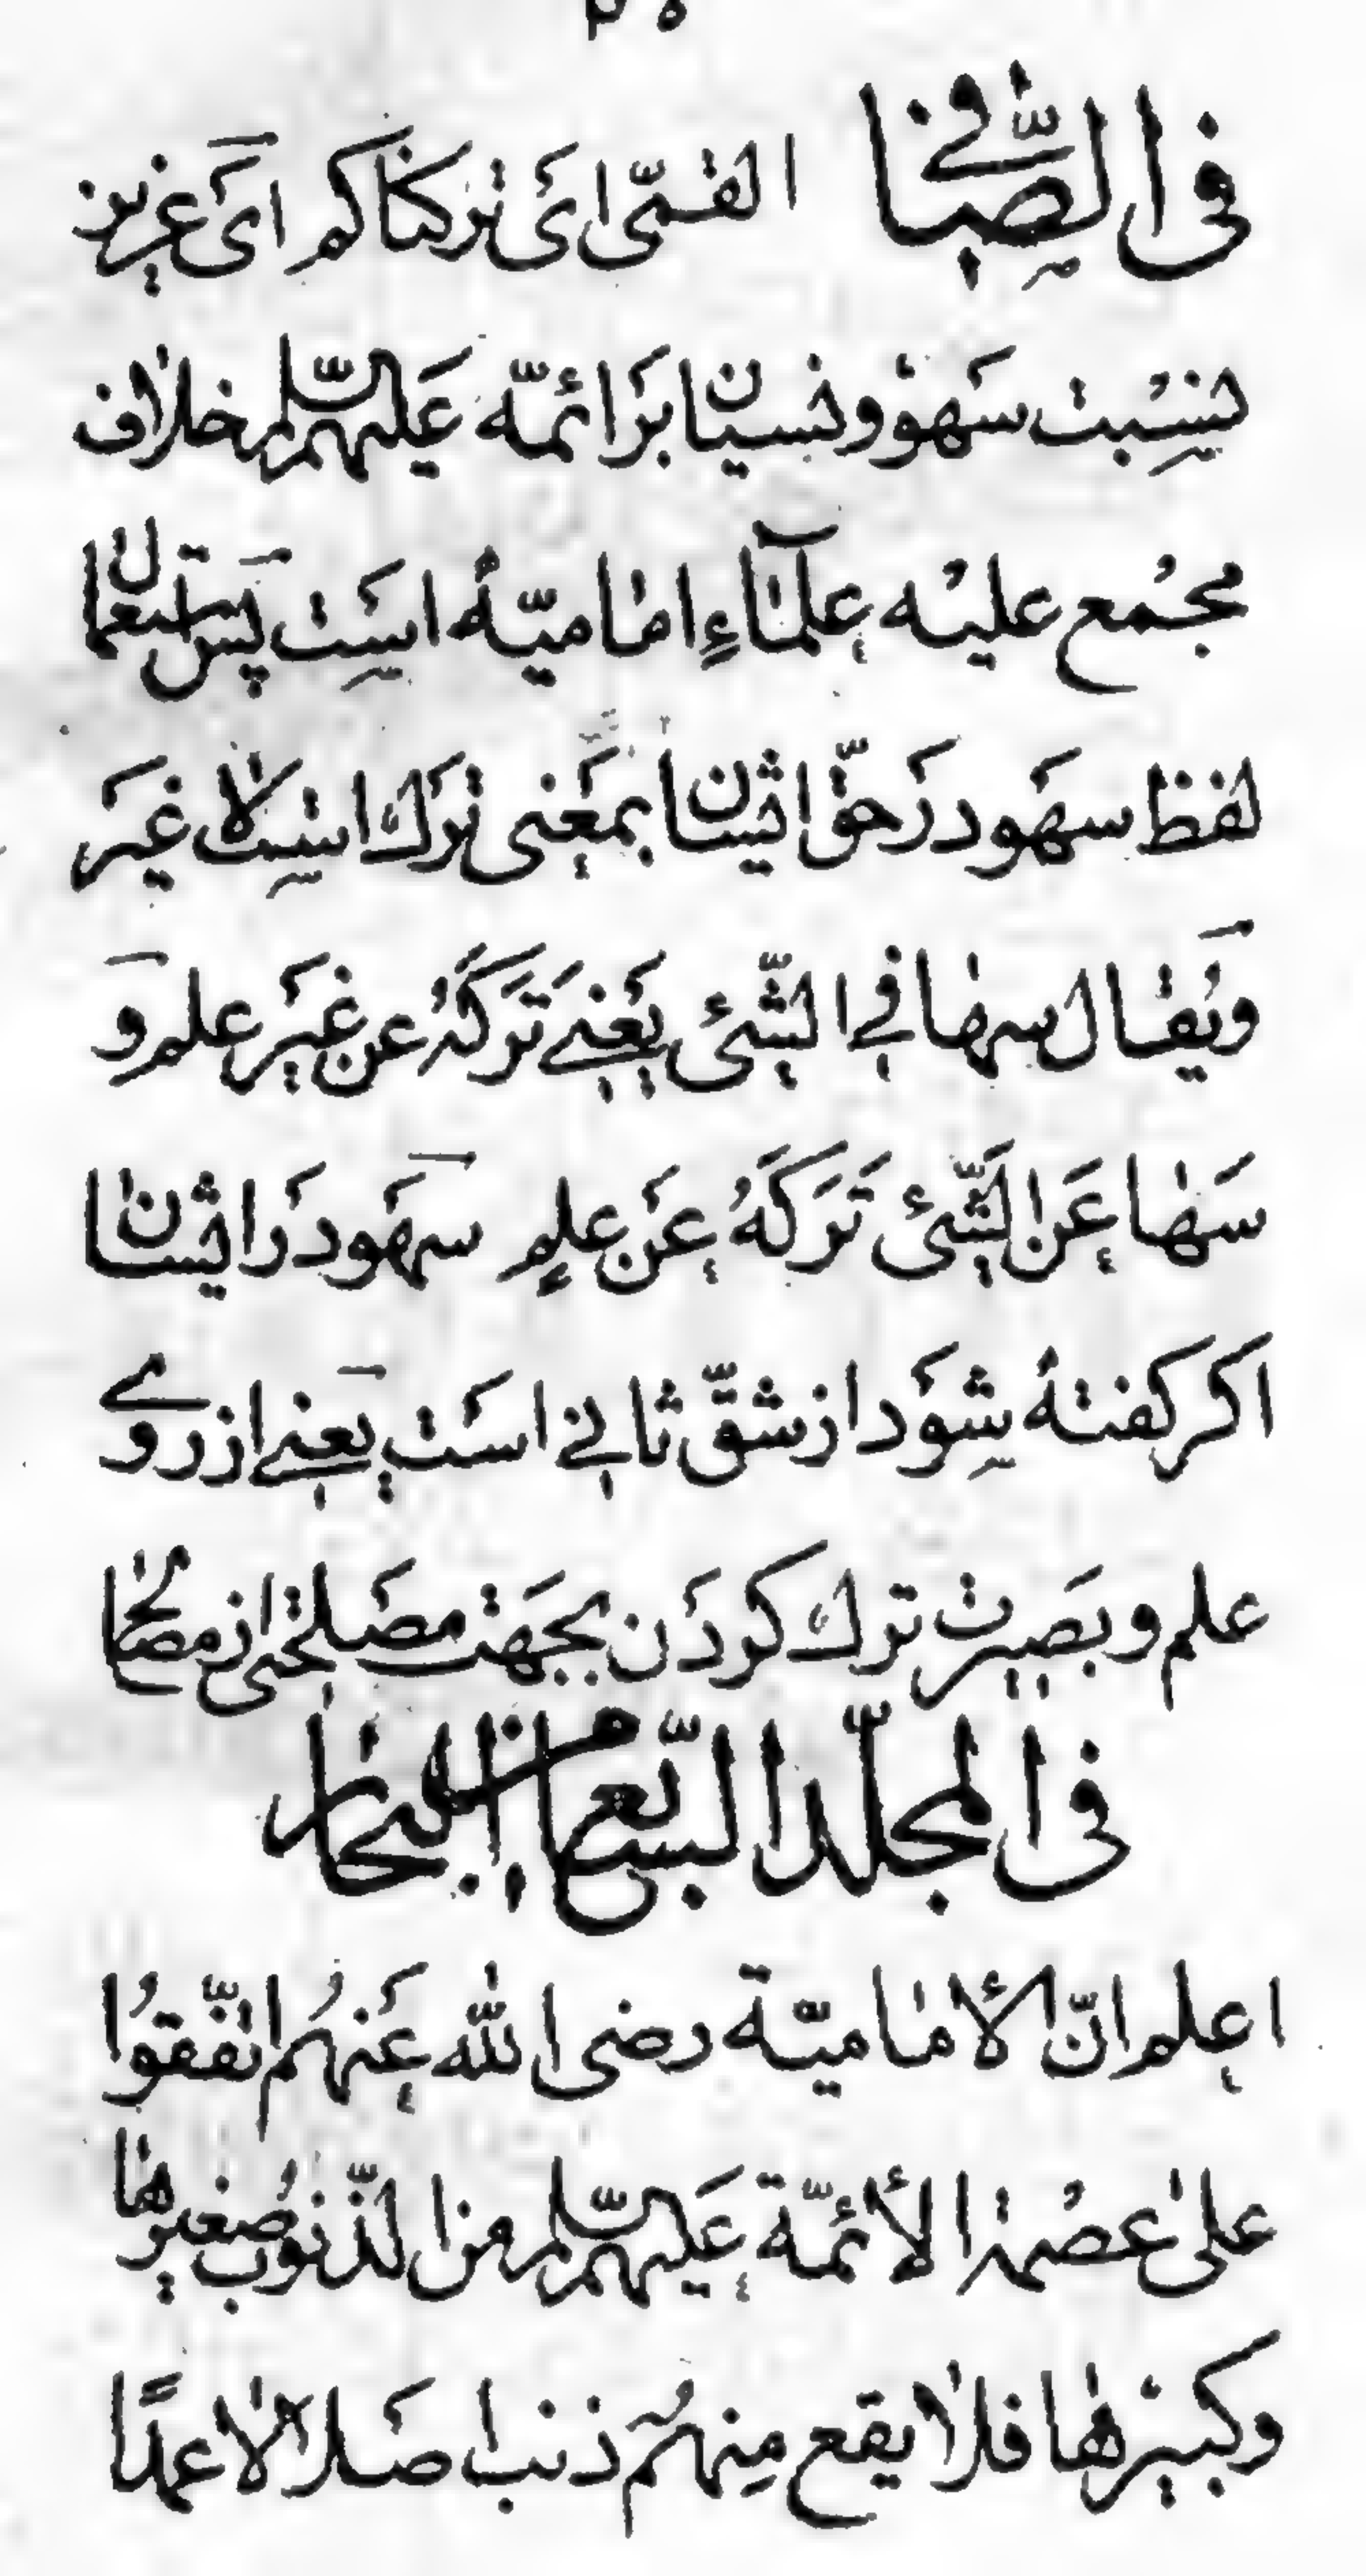 فی الصّٰافی القمّی ای ترکناکم ای عزیز
نسبت سهو و نسیان بر ائمّه علیهم السّلم خلاف
مجمع علیه علمآء امامیّه است پس استعمال
لفظ سهو در حقّ ایشان بمعنی ترک است لا غیر
و یقال سها فی الشّئ یعنی ترکه عن غیر علم و
سها عن الشّئ ترکه عن علم سهو در ایشان
اکر کفته شود از شقّ ثانی است یعنی از روی
علم و بصیرت ترک کردن بجهت مصلحتی از مصالح
فی المجلّد السّابع من البحار
اعلم انّ الأمامیّة رضی الله عنهم اتّفقوا
علی عصمة الأئمّة علیهم السّلم من الذّنوب صغیرها
و کبیرها فلا یقع منهم ذنب اصلا لا عمدًا